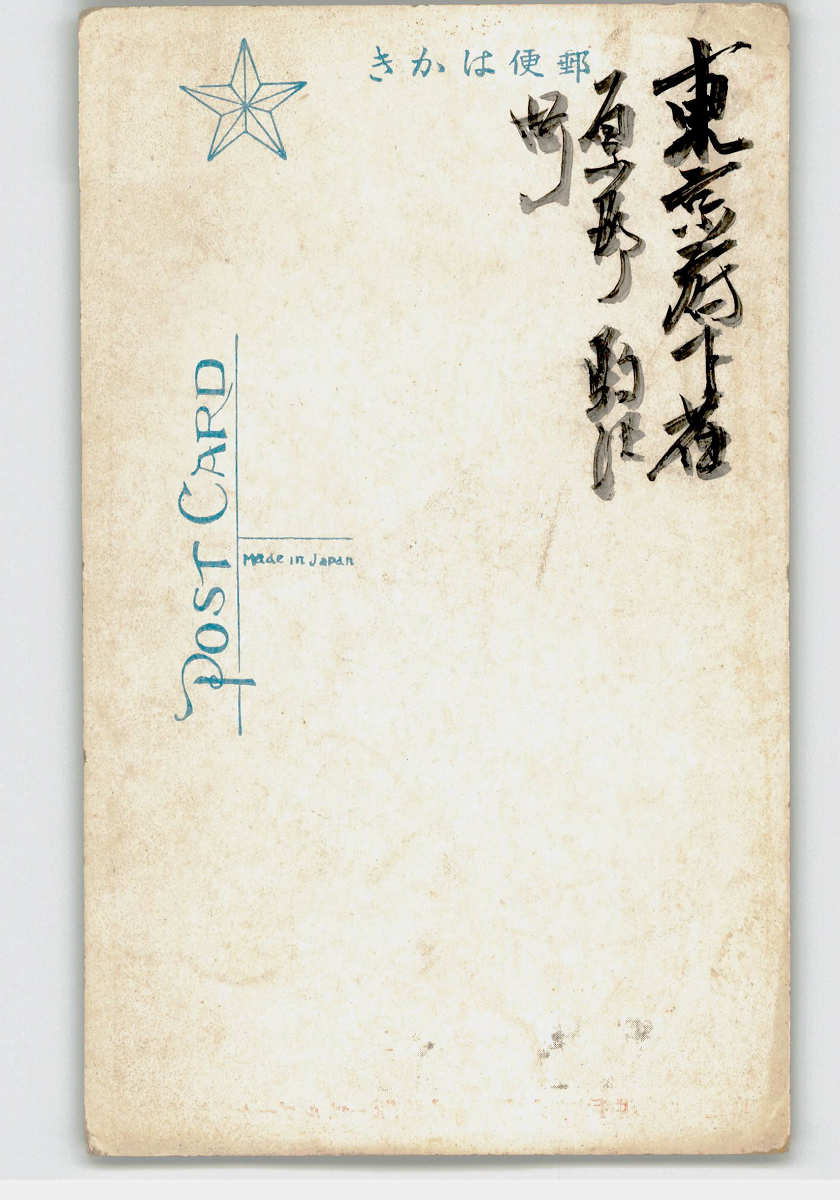 郵便はかき
東京府下荏
原郡 駒沢
町
POST CARD
Made in Japan